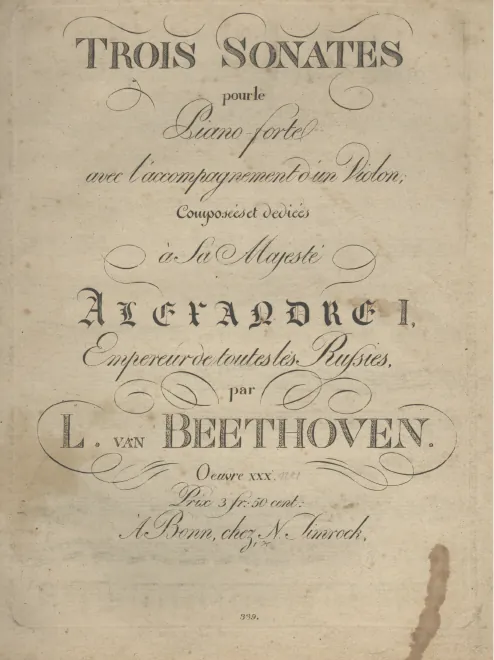 TROIS SONATES
pour le
Piano-forte
avec l'accompagnement d'un Violon,
Composées et dediées
à Sa Majesté
ALEXANDRE I,
Empereur de toutes les Russies,
par
L. VAN BEETHOVEN.
Oeuvre XXX.
Prix 3 fr: 50 cent:
A Bonn, chez N. Simrock,
339.